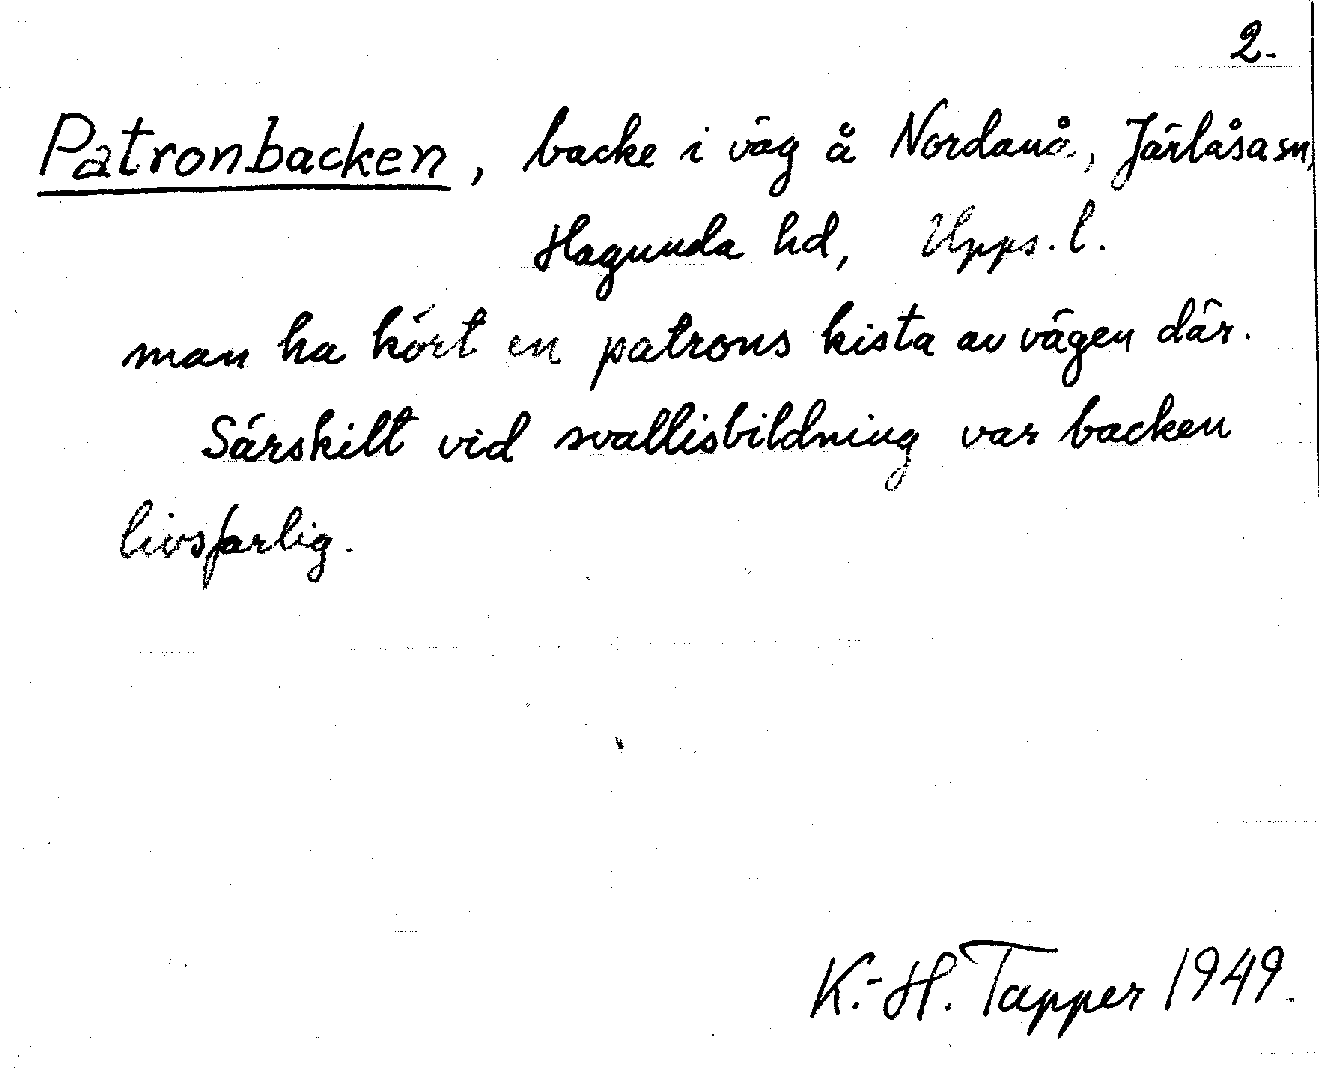 2.
Patronbacken, backe i väg å Nordanå, Järlåsa sn,
Hagunda hd, Upps. l.
man ha kört en patrons kista av vägen där.
Särskilt vid svallisbildning var backen
livsfarlig.
K.-H. Tapper 1949.